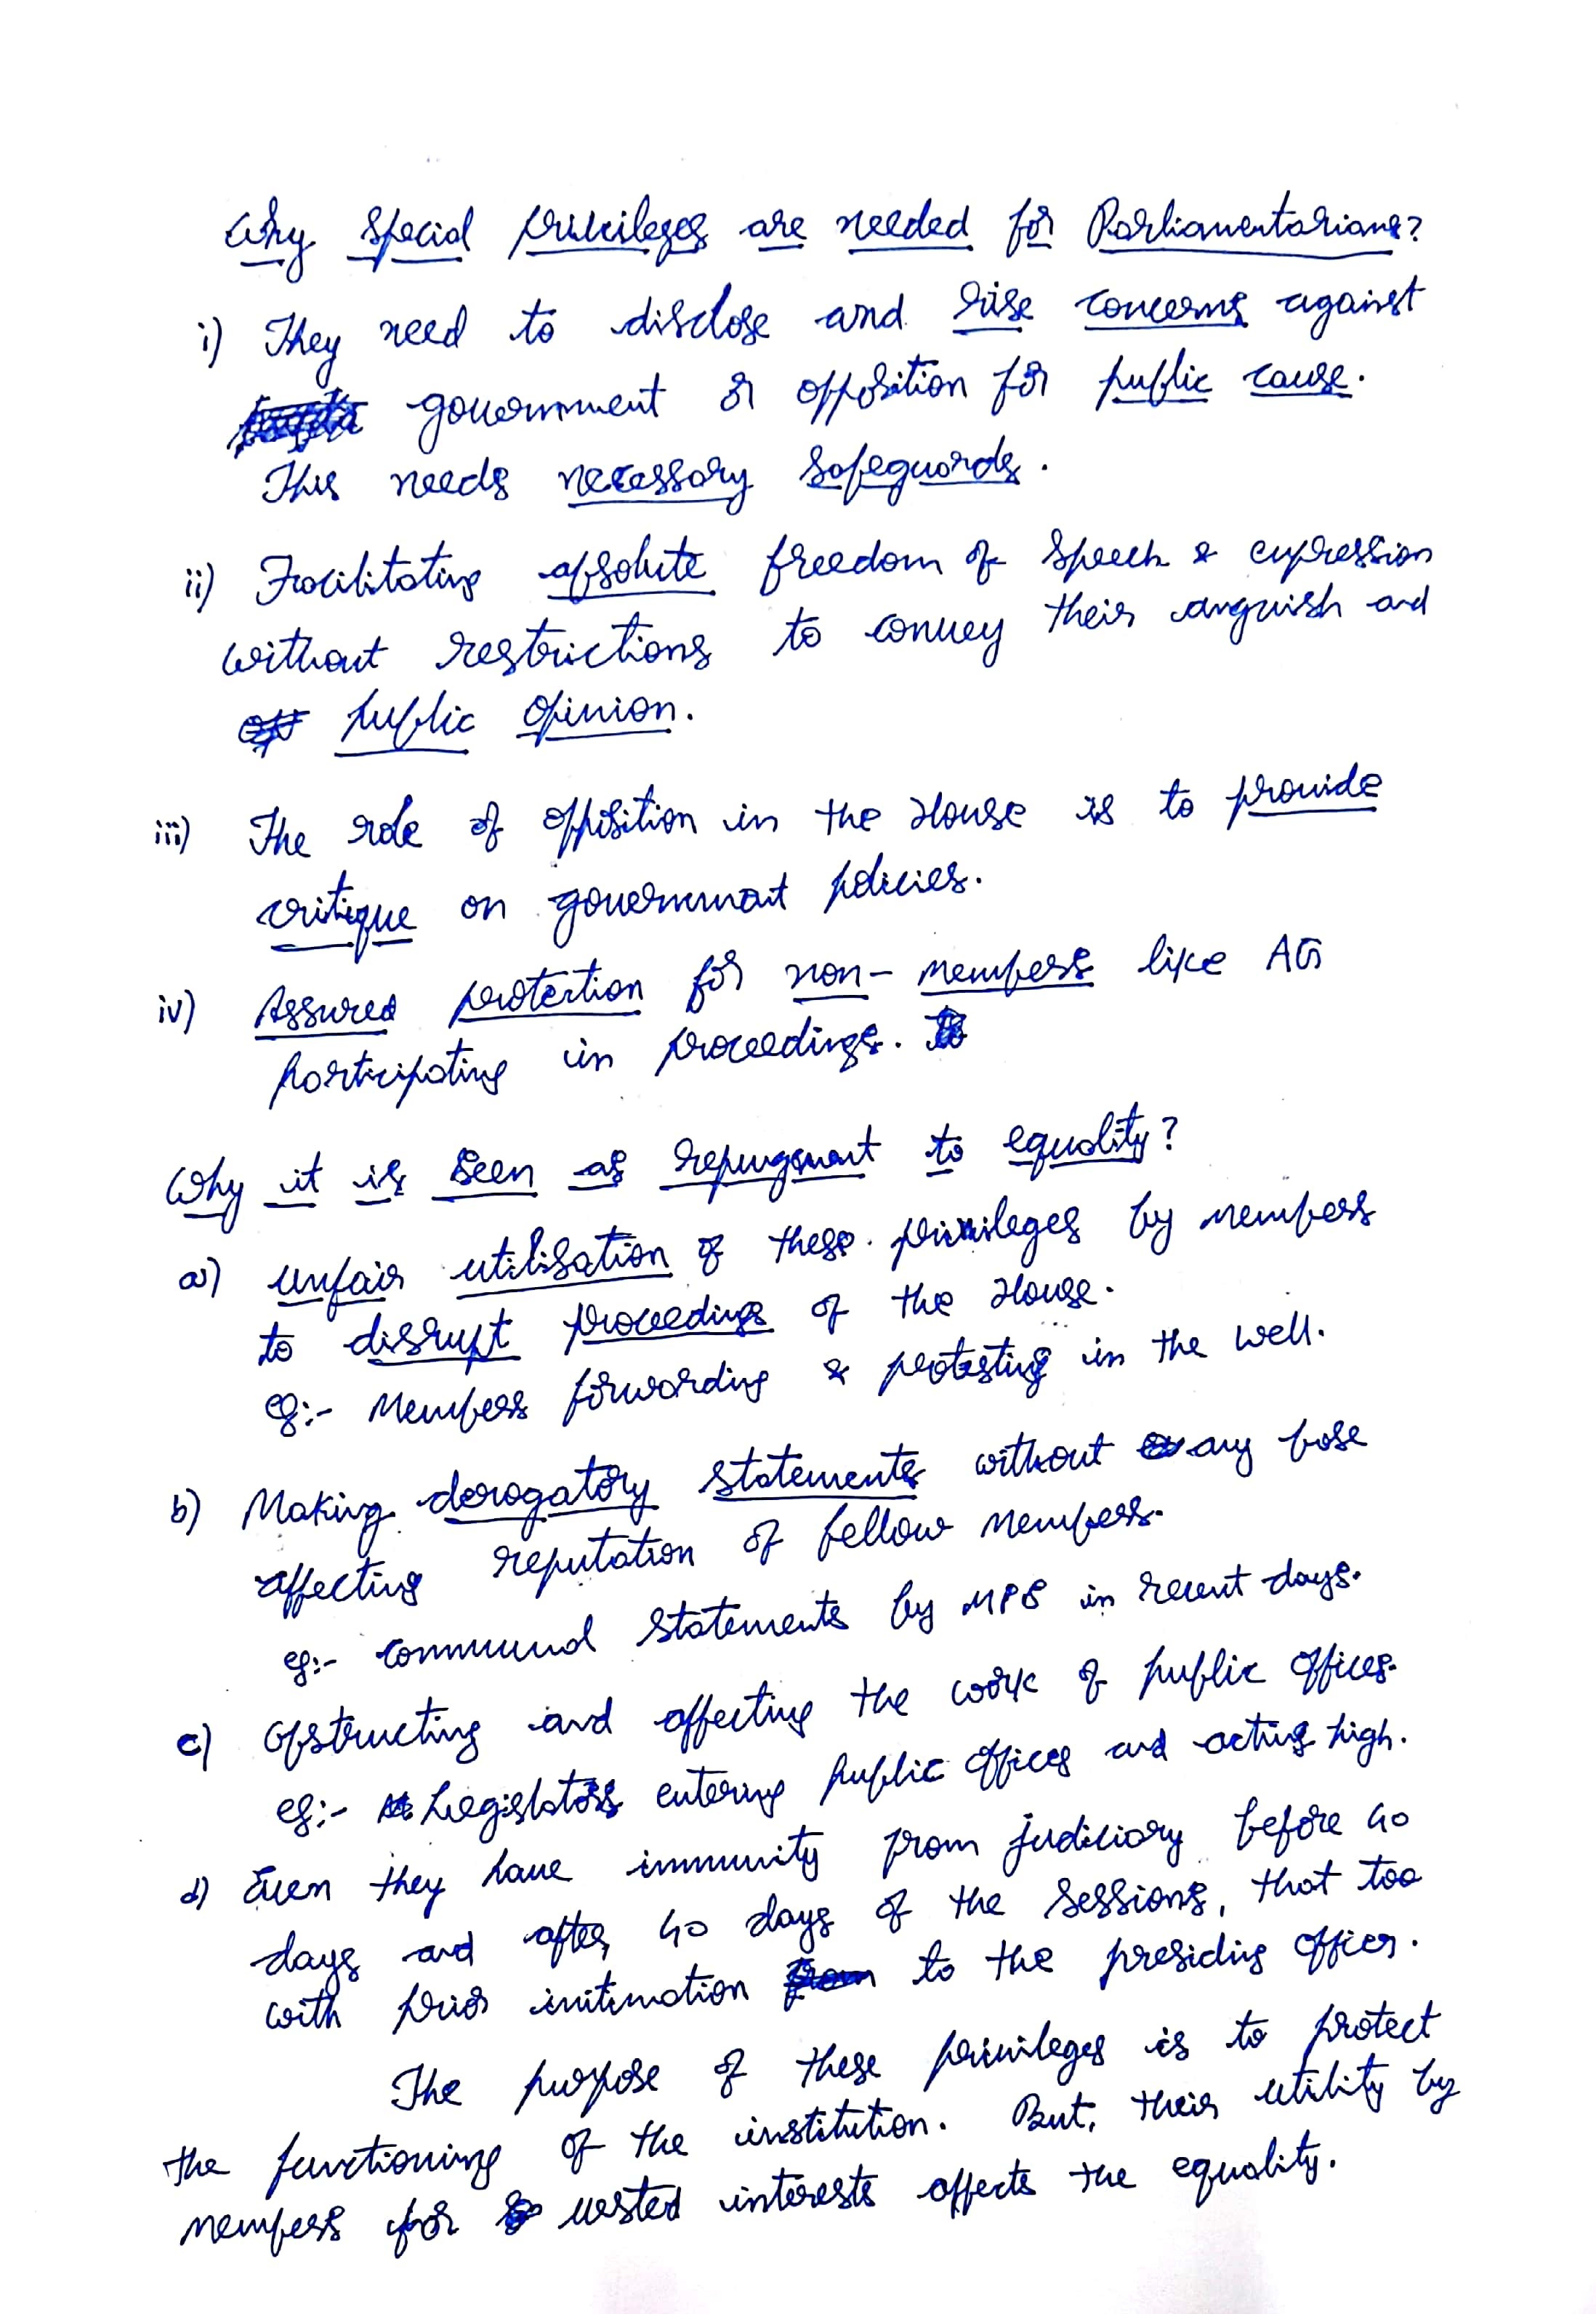 Why special privileges are needed for Parliamentarians?
i) They need to disclose and rise concerns against
government or opposition for public cause.
This needs necessary safeguards.
ii) Facilitating absolute freedom of speech & expression
without restrictions to convey their anguish and
public opinion.
iii) The role of opposition in the House is to provide
critique on government policies.
iv) Assured protection for non-members like AG
participating in proceedings.
Why it is seen as repugnant to equality?
a) unfair utilisation of these privileges by members
to disrupt proceedings of the House.
eg:- Members forwarding & protesting in the well.
b) Making derogatory statements without any base
affecting reputation of fellow members.
eg:- communal statements by MPs in recent days.
c) Obstructing and affecting the work of public offices.
eg:- Legislators entering public offices and acting high.
d) Even they have immunity from judiciary before 40
days and after 40 days of the sessions, that too
with prior initimation to the presiding officer.
The purpose of these privileges is to protect
the functioning of the institution. But, their utility by
members for vested interests affects the equality.